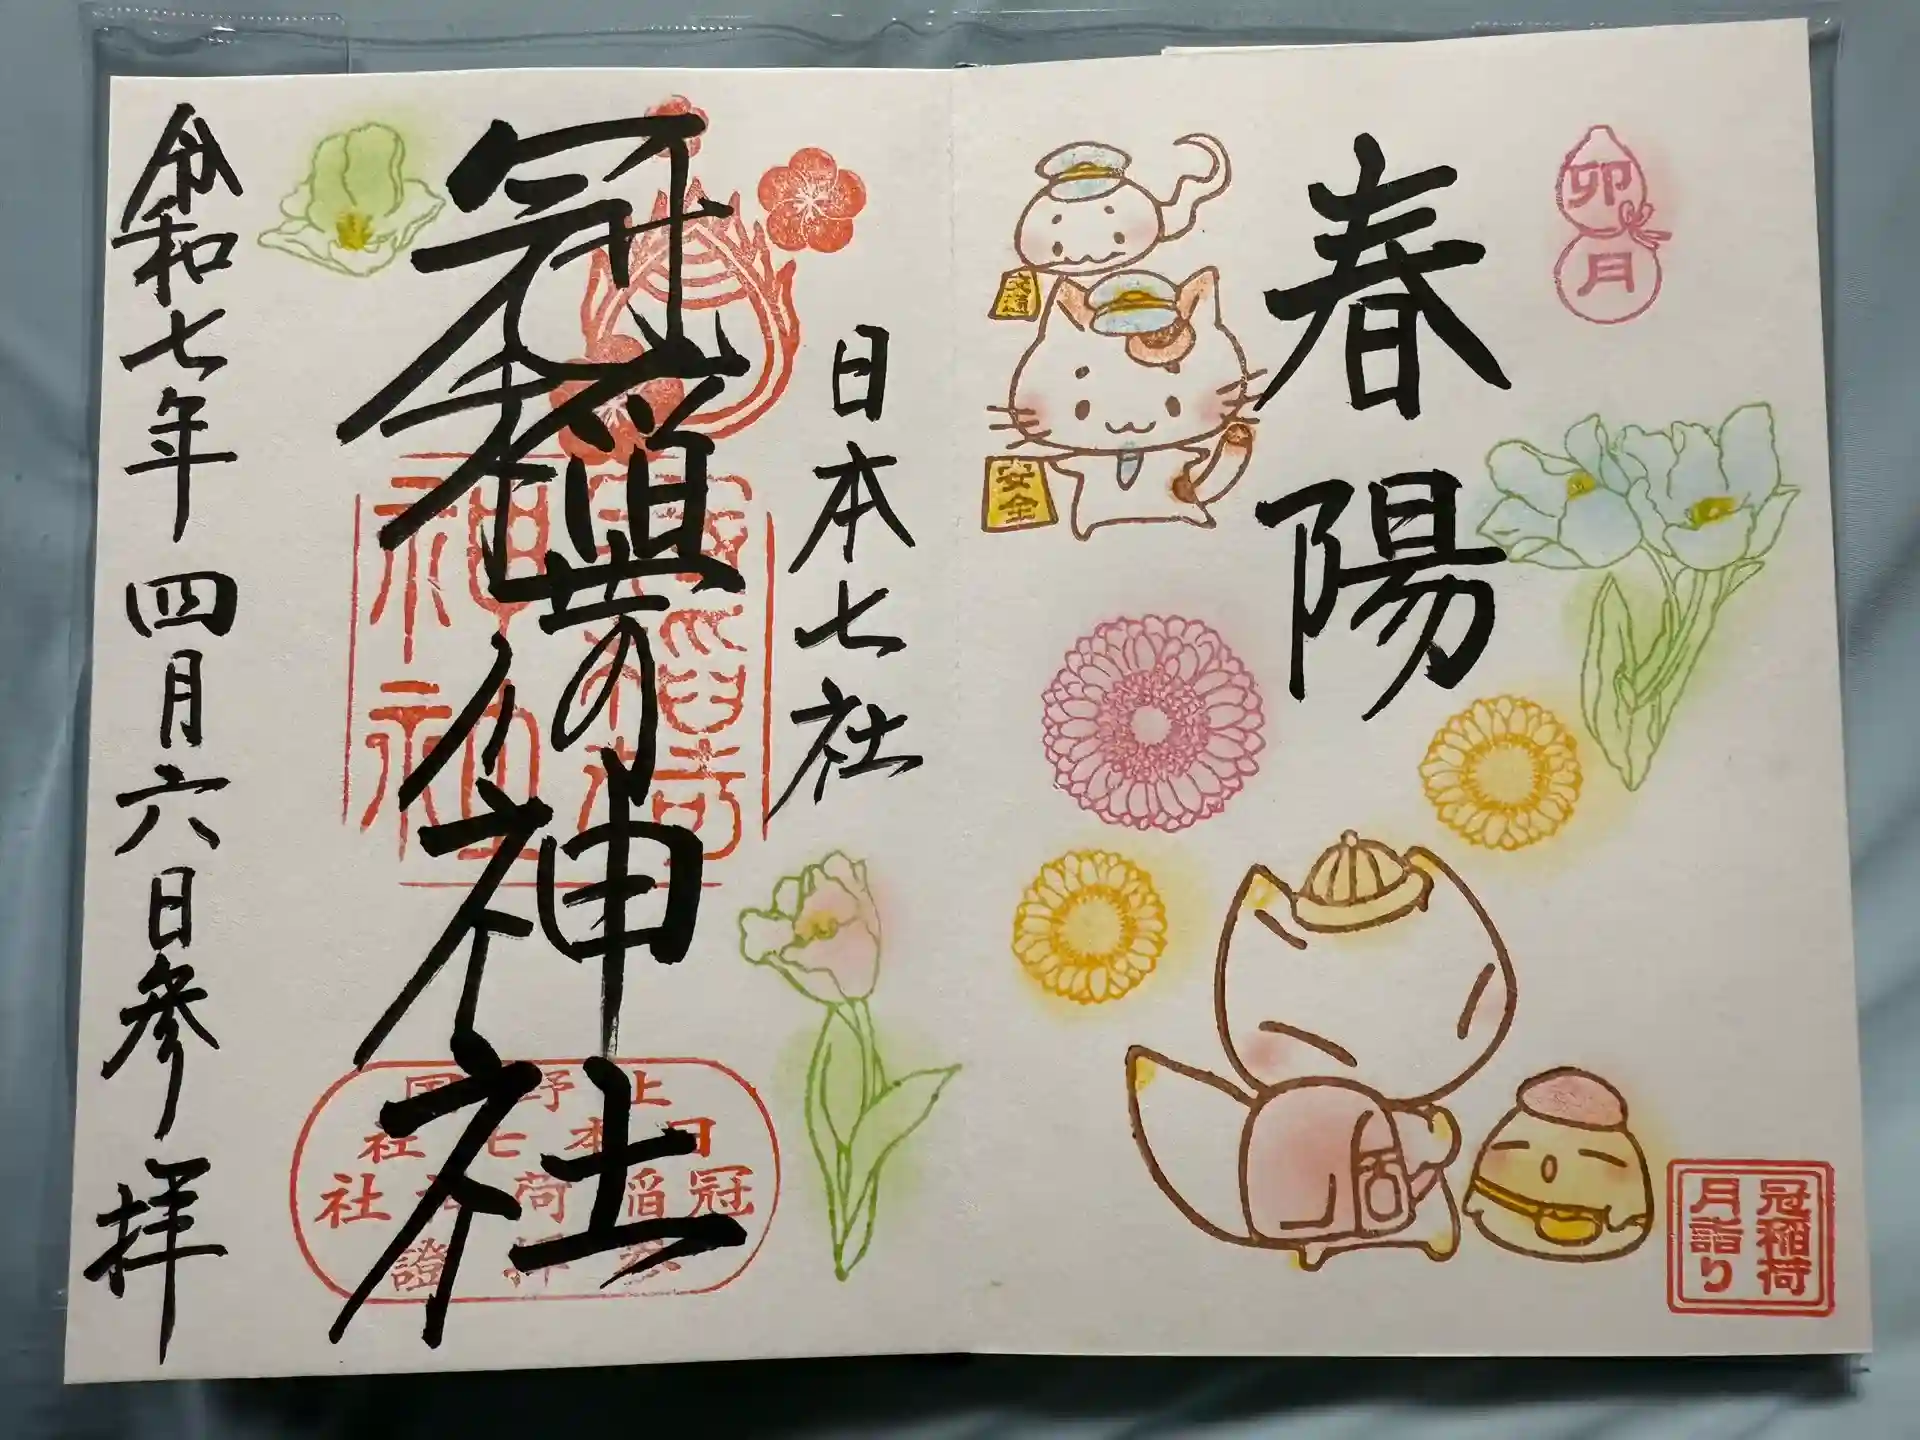 卯月
春陽
交通
安全
冠稲荷
月詣り
日本七社
冠稲荷神社
上野国
日本七社
冠稲荷神社
参拝證
令和七年四月六日参拝